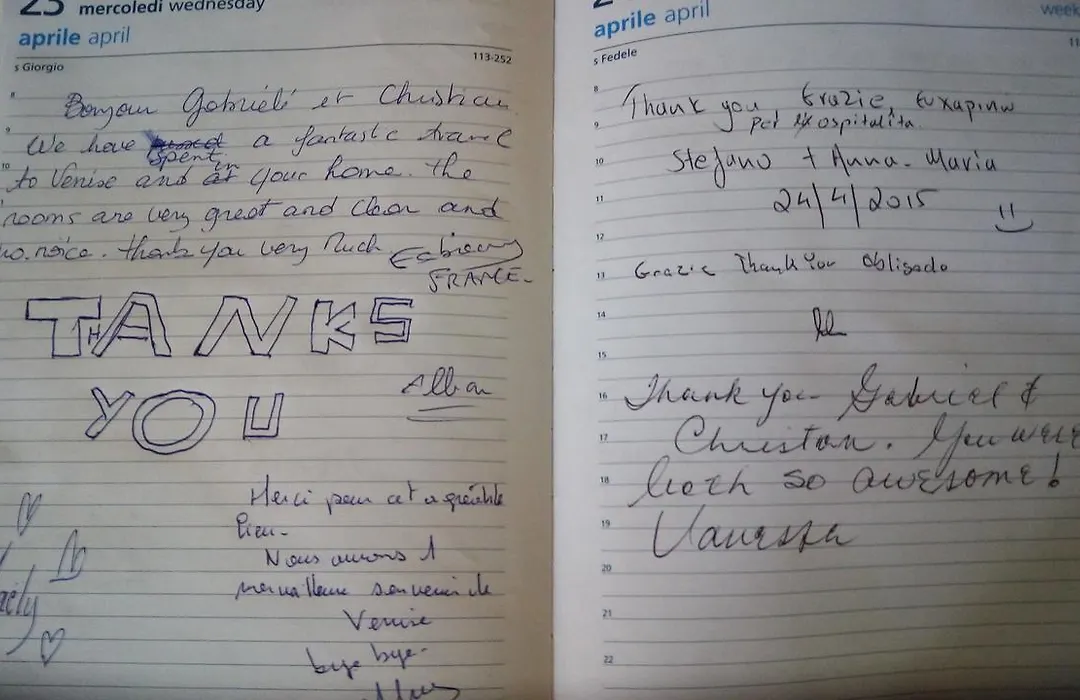 23 mercoledì wednesday
aprile april
s Giorgio
113-252
8
Bonjour Gabriélé et Christian
9
We have spent a fantastic travel
10
to Venise and in your home. the
rooms are very great and clean and
no noice. thank you very Much
FRANCE-
THANKS
YOU
Alban
Merci pour cet agréable
lieu.
Nous aurons 1
merveilleux souvenir de
Venise
bye bye-
aprile april
week
s Fedele
11
8
Thank you, Grazie, Ευχαριστω
9
per l'ospitalita
10
Stefano + Anna-Maria
11
24/4/2015
12
13
Grazie Thank You Obligado
14
15
16
Thank you Gabriel &
17
Christan. You were
18
both so awesome!
19
Vanessa
20
21
22